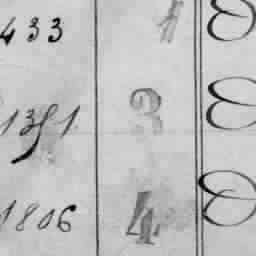 433 1
1351 3
1806 4